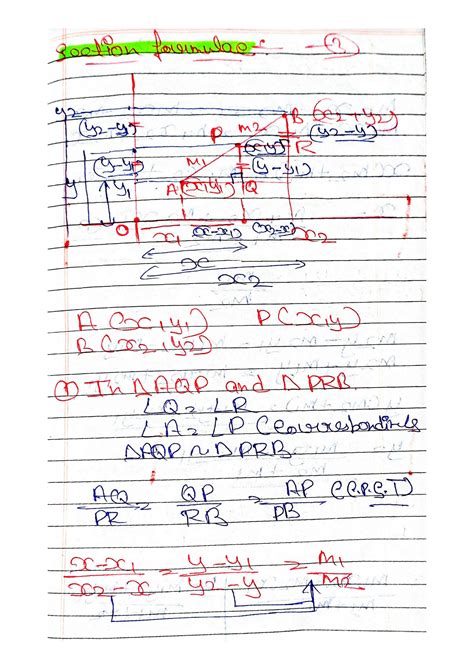 Section formulae:- — ②
y2
(y2-y)
B(x2,y2)
P m2
(y2-y)
(x,y) R
(y-y1)
m1
(y-y1)
y
y1
A(x,y1) Q
O
x1 (x-x1) (x2-x) x2
x
x2
A (x1,y1) P(x,y)
B(x2,y2)
① In ΔAQP and ΔPRB.
∠Q = ∠R
∠A = ∠P (corresponding ∠s
ΔAQP ~ ΔPRB.
AQ/PR = QP/RB = AP/PB (C.P.C.T)
x-x1/x2-x = y-y1/y2-y = m1/m2